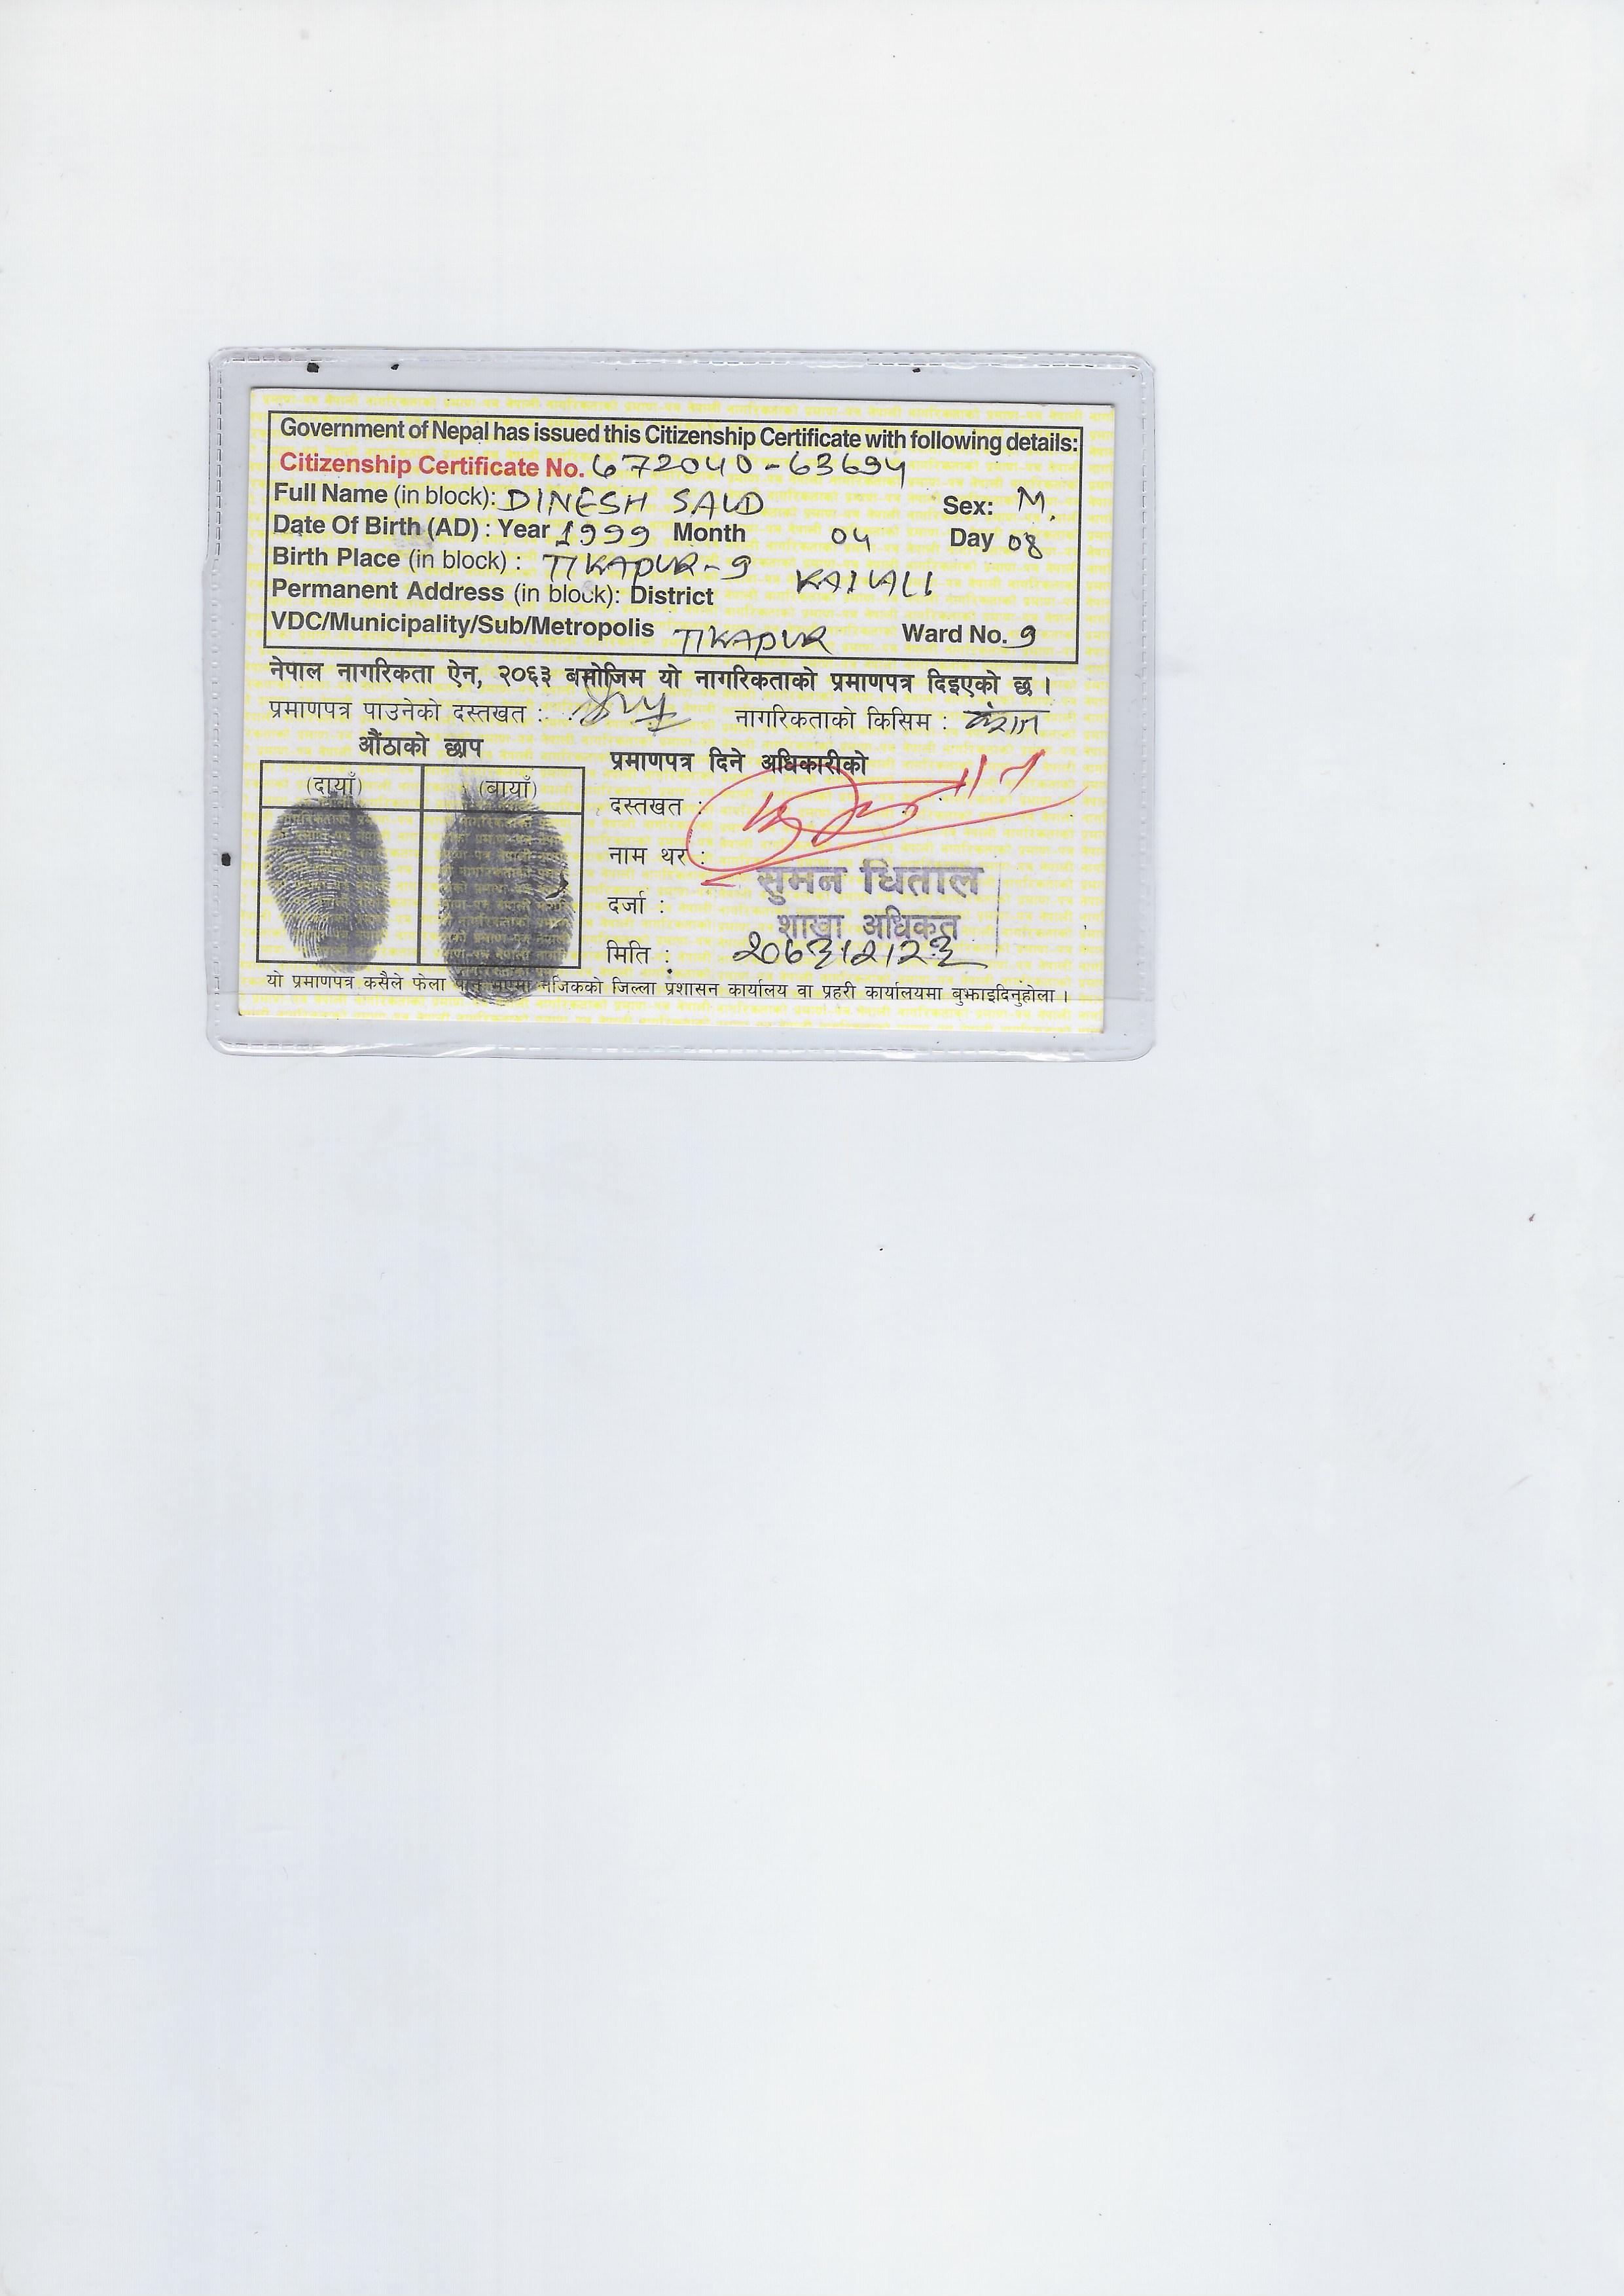 Government of Nepal has issued this Citizenship Certificate with following details:
Citizenship Certificate No. 672040-63694
Full Name (in block): DINESH SAUD Sex: M.
Date Of Birth (AD) : Year 1999 Month 04 Day 08
Birth Place (in block) : TIKAPUR-9
Permanent Address (in block): District KAILALI
VDC/Municipality/Sub/Metropolis TIKAPUR Ward No. 9
नेपाल नागरिकता ऐन, २०६३ बमोजिम यो नागरिकताको प्रमाणपत्र दिइएको छ ।
प्रमाणपत्र पाउनेको दस्तखत : नागरिकताको किसिम : वंशज
औंठाको छाप
(दायाँ) (बायाँ)
प्रमाणपत्र दिने अधिकारीको
दस्तखत :
नाम थर : सुमन धिताल
दर्जा : शाखा अधिकृत
मिति :
यो प्रमाणपत्र कसैले फेला नजिकको जिल्ला प्रशासन कार्यालय वा प्रहरी कार्यालयमा बुझाइदिनुहोला ।